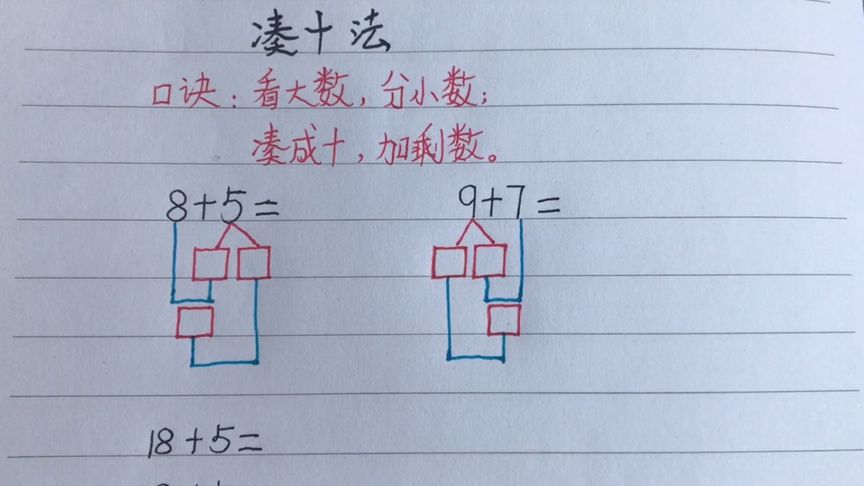 凑十法
口诀：看大数，分小数；
凑成十，加剩数。
8+5= 9+7=
18+5=